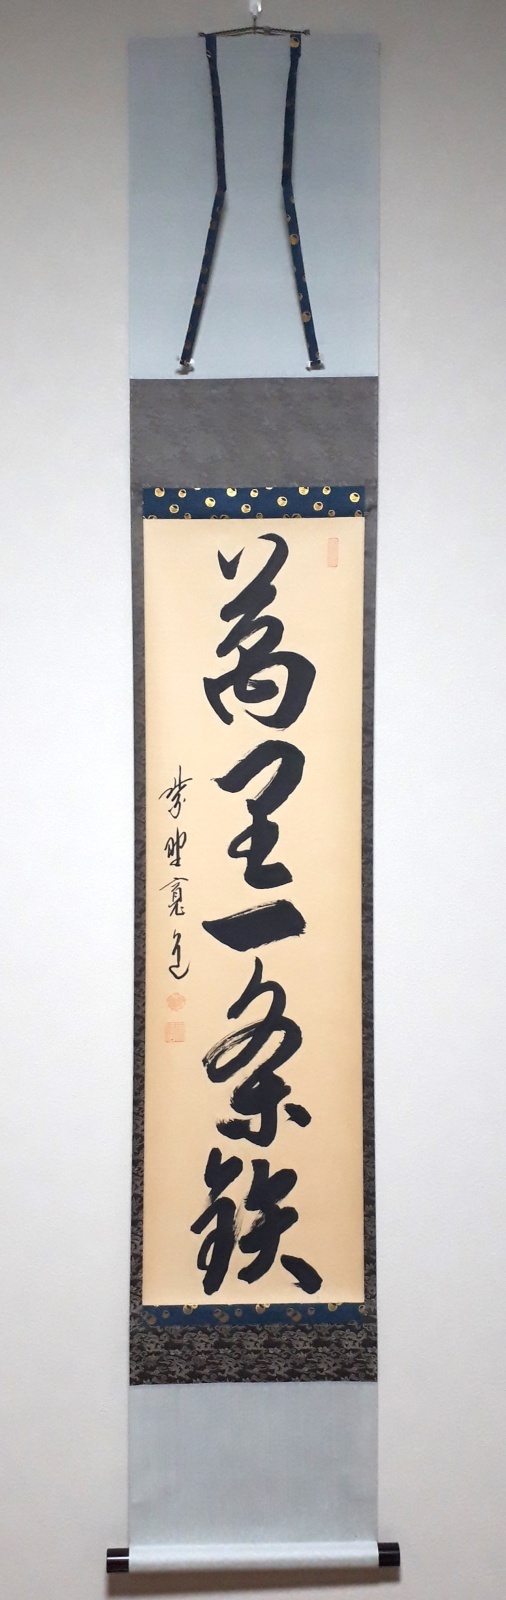 萬里一条鉄
紫野寛道